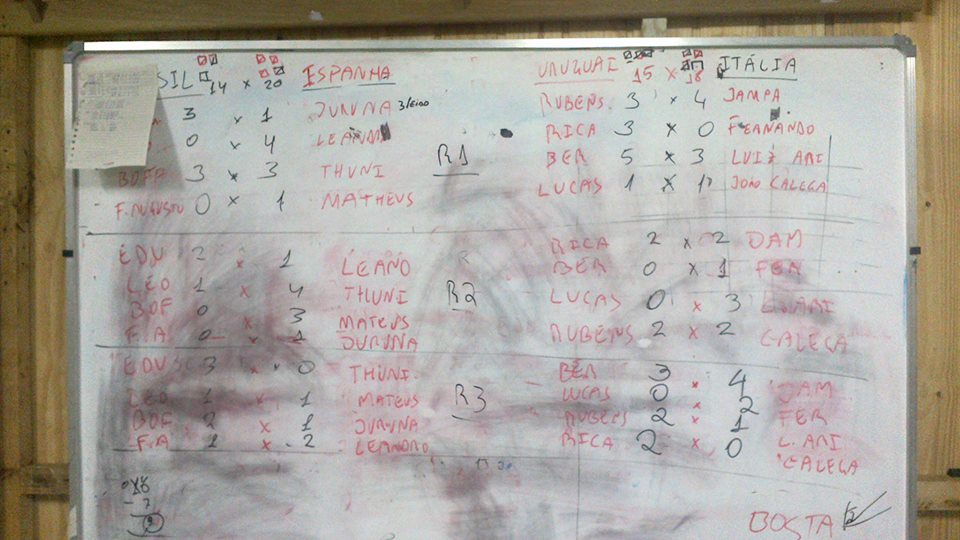 SIL 14 x 20 ESPANHA
3 x 1 JURUNA
0 x 4 LEANDRO
BOFF 3 x 3 THUNI
F. AUGUSTO 0 x 1 MATHEUS
URUGUAI 15 x 18 ITÁLIA
RUBENS 3 x 4 JAMPA
RICA 3 x 0 FERNANDO
BER 5 x 3 LUIZ ARI
LUCAS 1 x 1 JOÃO CALEGA
R1
EDU 2 x 1 LEANO
LÉO 1 x 4 THUNI
BOF 0 x 3 MATEUS
F.A 0 x 1 JURUNA
R2
RICA 2 x 2 DAM
BER 0 x 1 FER
LUCAS 0 x 3 L. ARI
RUBENS 2 x 2 CALEGA
EDU 3 x 0 THUNI
LÉO 1 x 1 MATEUS
BOF 2 x 1 JURUNA
F.A 1 x 2 LEANDRO
R3
BER 3 x 4 JAM
LUCAS 0 x 2 FER
RUBENS 2 x 1 L. ARI
RICA 2 x 0 CALEGA
BOSTA